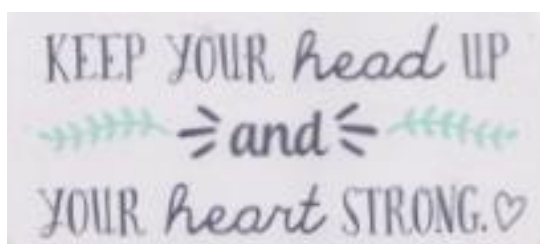 KEEP YOUR head UP
and
YOUR heart STRONG.